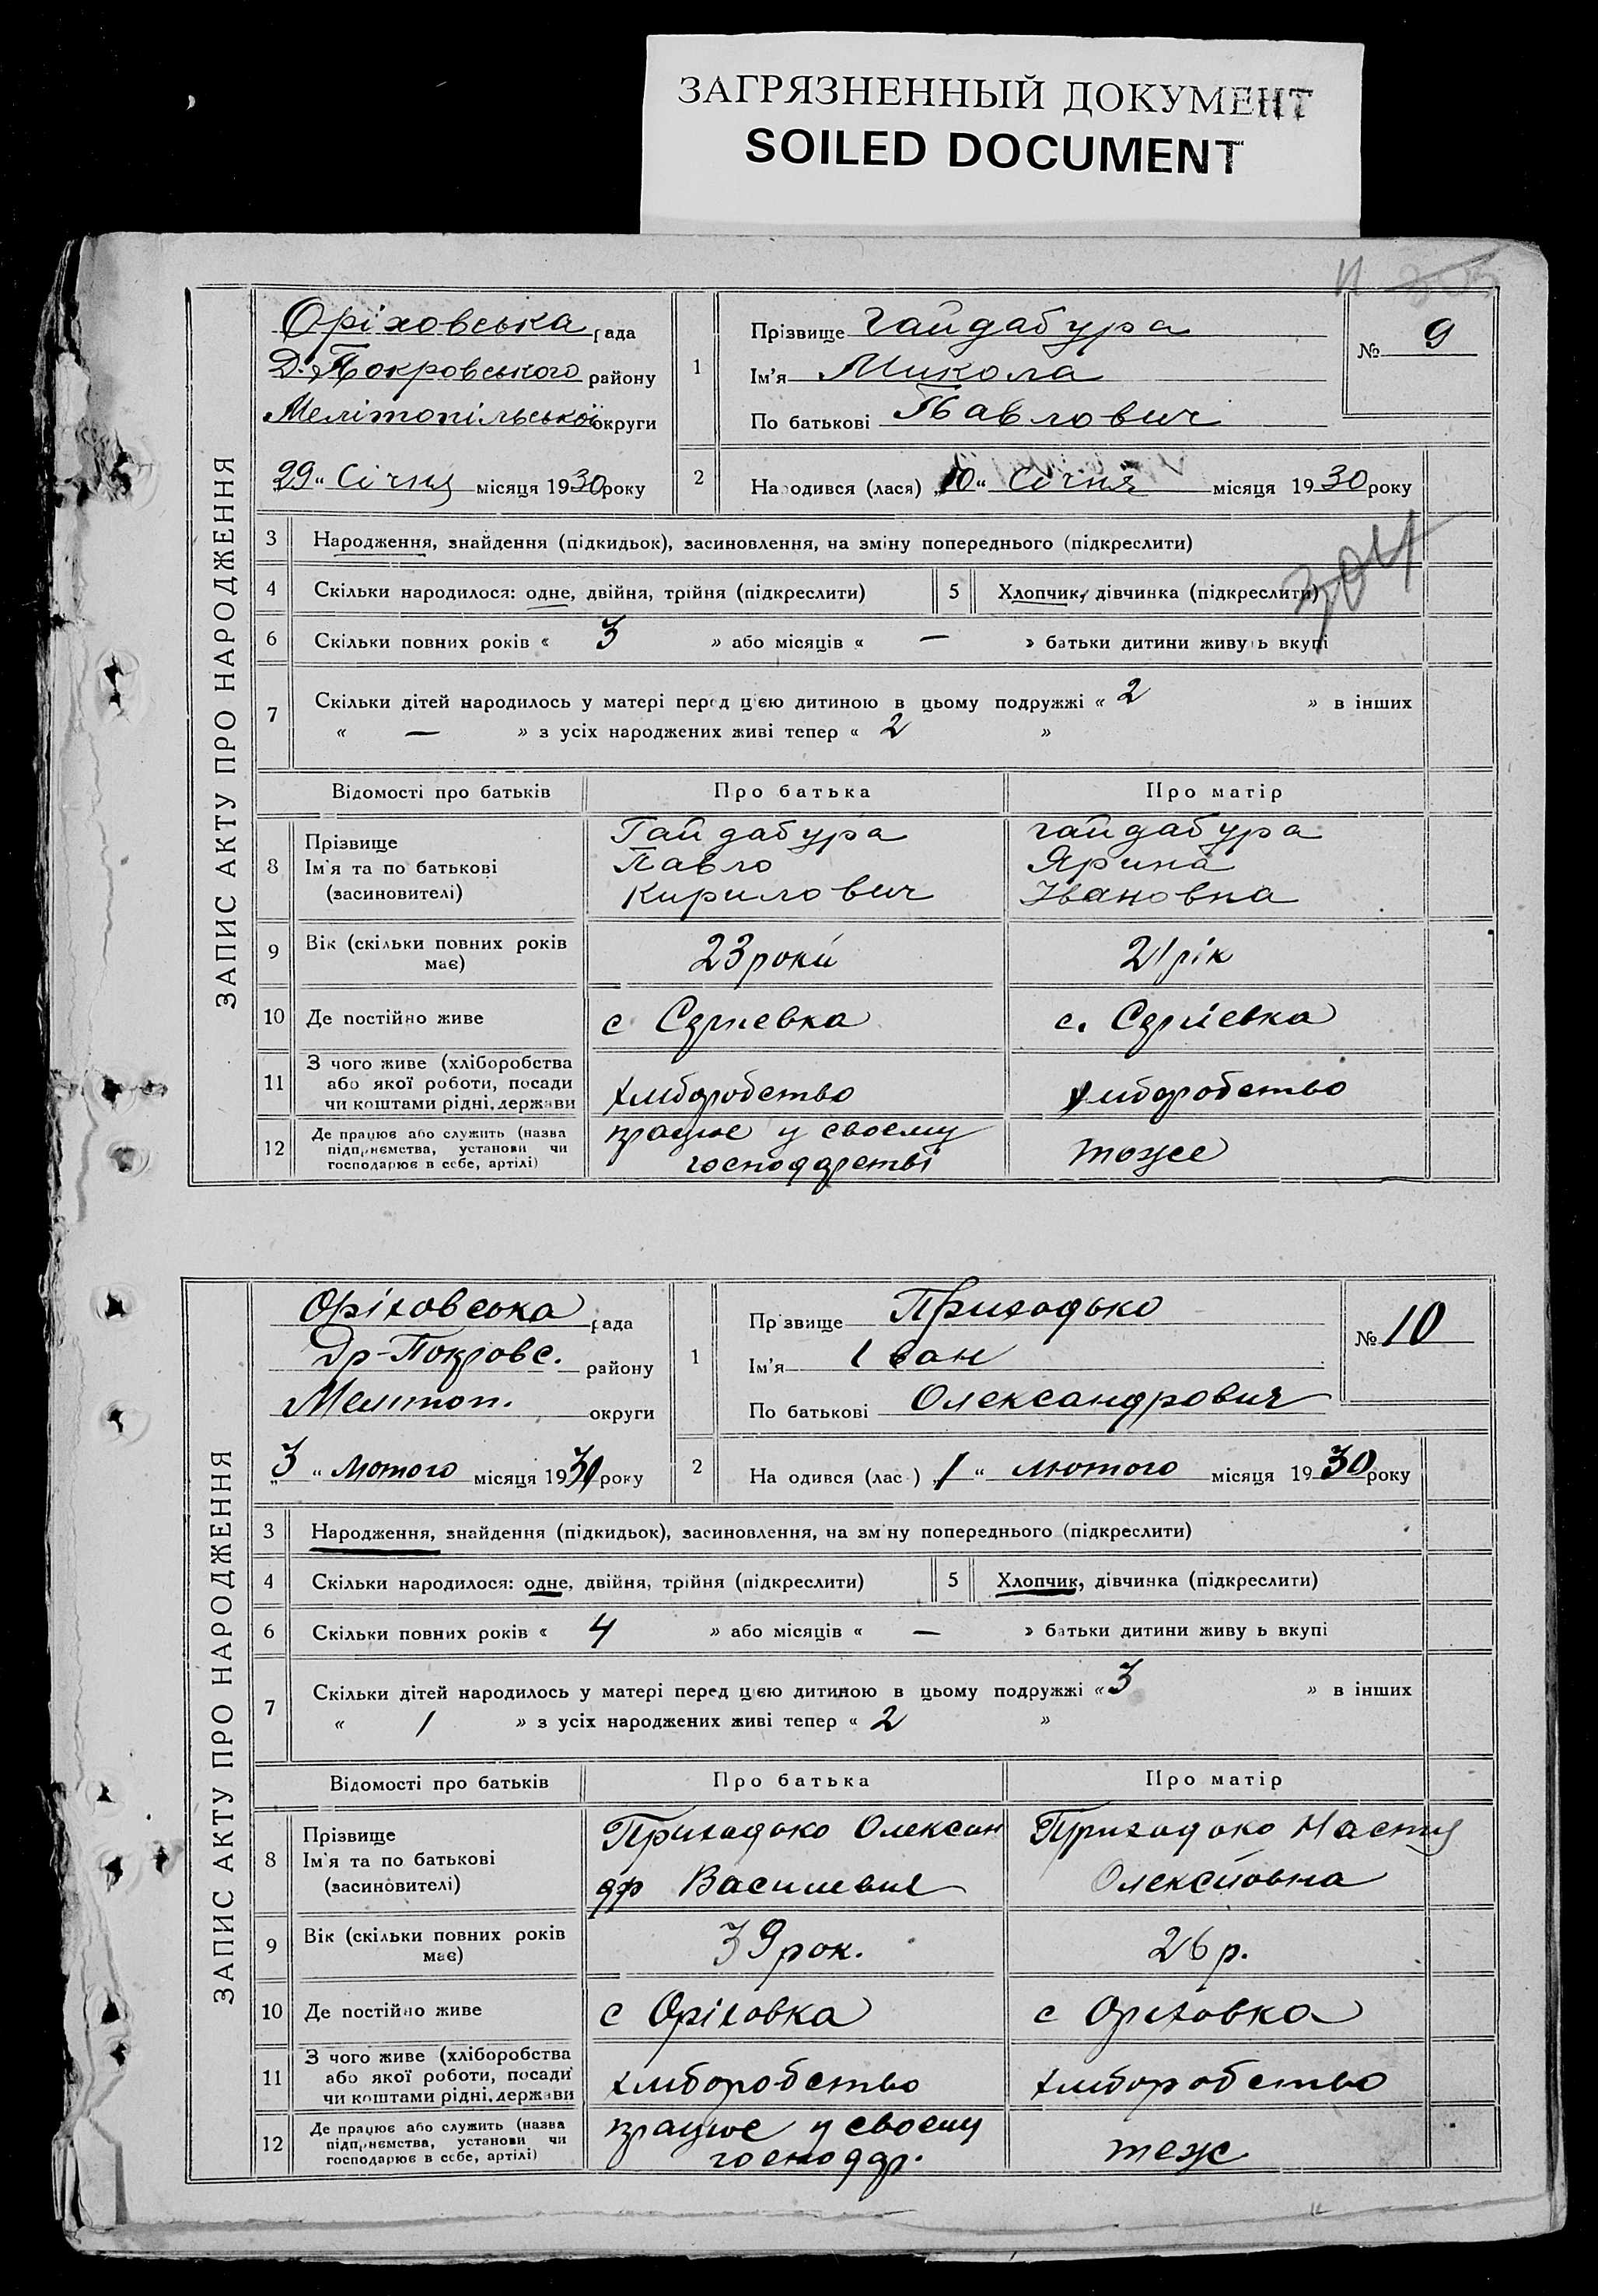 ЗАГРЯЗНЕННЫЙ ДОКУМЕНТ
SOILED DOCUMENT
ЗАПИС АКТУ ПРО НАРОДЖЕННЯ
Оріховська рада
Д. Покровського району
Мелітопільської округи
29 " Січня місяця 1930 року
1
Прізвище Гайдабура
Ім'я Микола
По батькові Павлович
№ 9
2
Народився (лася) „10 " Січня місяця 1930 року
304
3 Народження, знайдення (підкидьок), засиновлення, на зміну попереднього (підкреслити)
4 Скільки народилося: одне, двійня, трійня (підкреслити) 5 Хлопчик, дівчинка (підкреслити)
6 Скільки повних років « 3 » або місяців « — » батьки дитини живуть вкупі
7 Скільки дітей народилось у матері перед цією дитиною в цьому подружжі « 2 » в інших
« — » з усіх народжених живі тепер « 2 »
Відомості про батьків Про батька Про матір
8 Прізвище Гайдабура Гайдабура
Ім'я та по батькові Павло Ярина
(засиновителі) Кирилович Івановна
9 Вік (скільки повних років має) 23 роки 21 рік
10 Де постійно живе с Сергіевка с. Сергіевка
11 З чого живе (хліборобства
або якої роботи, посади
чи коштами рідні, держави хліборобство хліборобство
12 Де працює або служить (назва працює у своему
підприємства, установи чи
господарює в себе, артілі) господарстві тоже
ЗАПИС АКТУ ПРО НАРОДЖЕННЯ
Оріховська рада
Др-Покровс. району
Мелітоп. округи
„3 " лютого місяця 1930 року
1
Прізвище Приходько
Ім'я Іван
По батькові Олександрович
№ 10
2
На одився (лас ) „1 " лютого місяця 1930 року
3 Народження, знайдення (підкидьок), засиновлення, на зміну попереднього (підкреслити)
4 Скільки народилося: одне, двійня, трійня (підкреслити) 5 Хлопчик, дівчинка (підкреслити)
6 Скільки повних років « 4 » або місяців « — » батьки дитини живу ь вкупі
7 Скільки дітей народилось у матері перед цією дитиною в цьому подружжі « 3 » в інших
« 1 » з усіх народжених живі тепер « 2 »
Відомості про батьків Про батька Про матір
8 Прізвище Приходько Олексан Приходько Настя
Ім'я та по батькові
(засиновителі) др Василевич Олексійовна
9 Вік (скільки повних років має) 39 рок. 26 р.
10 Де постійно живе с Оріховка с Оріховка
11 З чого живе (хліборобства
або якої роботи, посади
чи коштами рідні, держави хліборобство хліборобство
12 Де працює або служить (назва працює у своему
підприємства, установи чи
господарює в себе, артілі) господар. теж